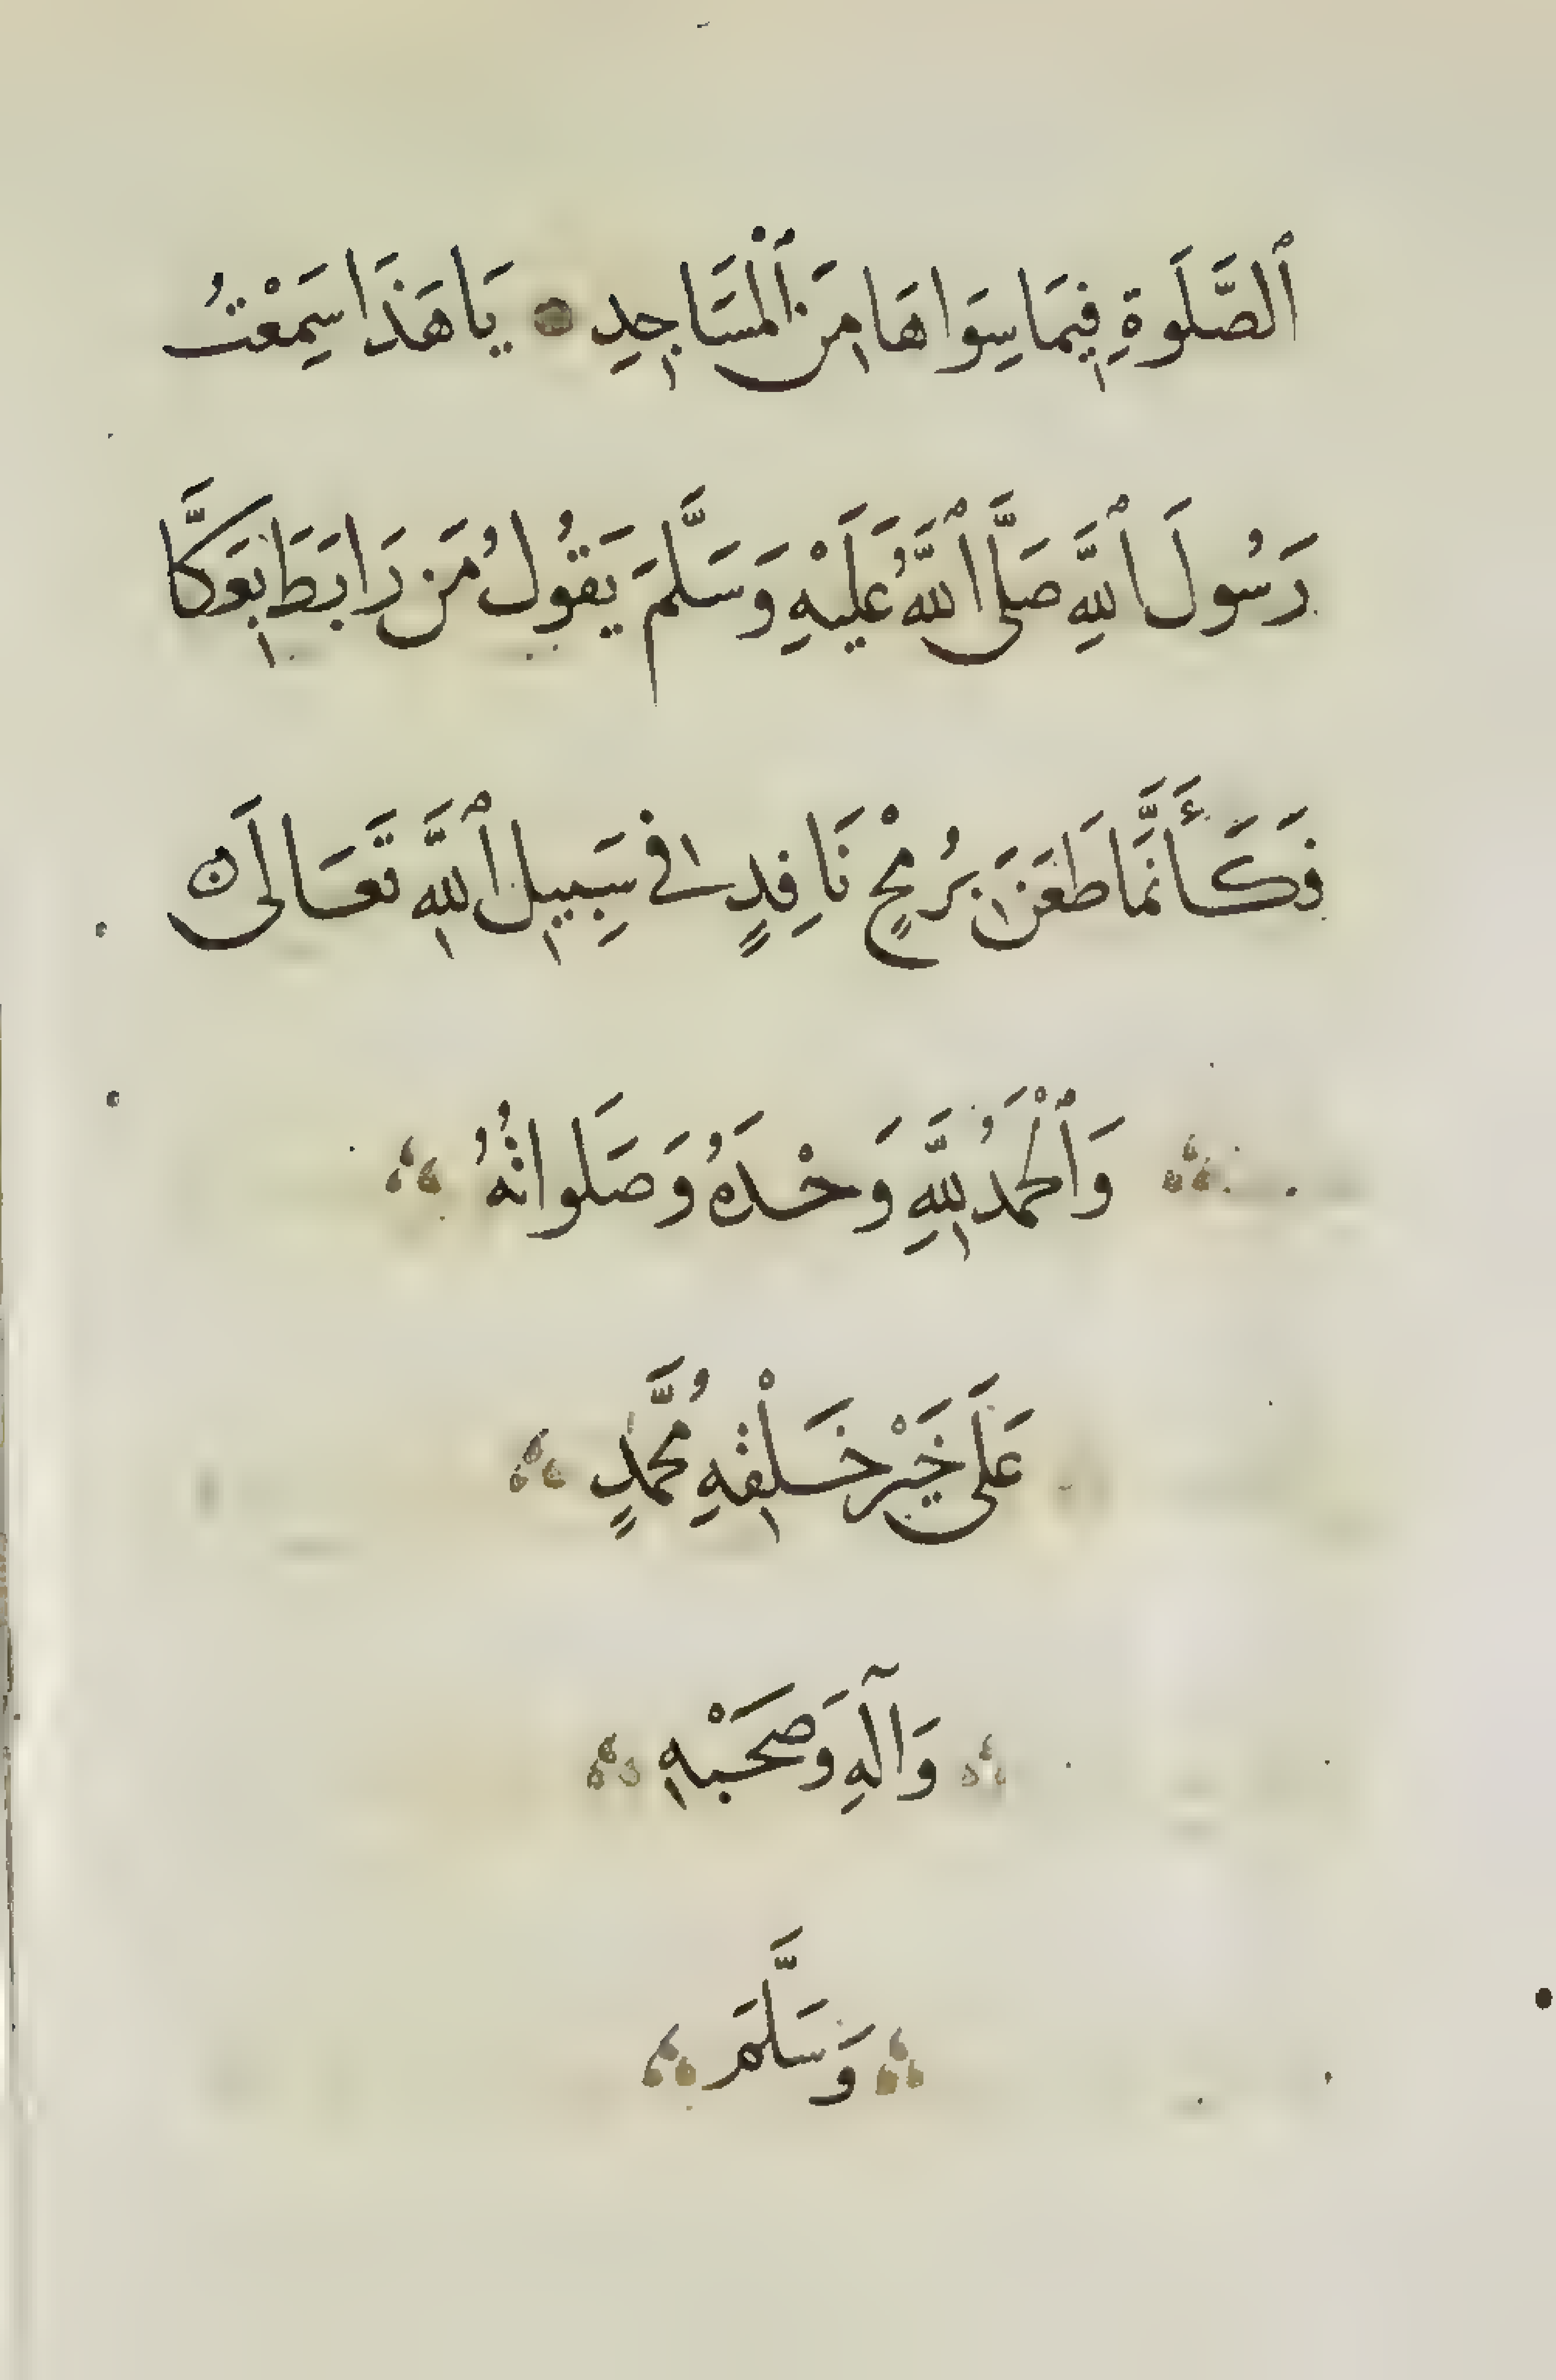 ٱلصَّلَوةِ فِيمَا سِوَاهَا مِنَ ٱلْمَسَاجِدِ يَا هَذَا سَمِعْتُ
رَسُولَ ٱللَّهِ صَلَّى ٱللَّهُ عَلَيْهِ وَسَلَّمَ يَقُولُ مَن رَابَطَ بِعَكَّا
فَكَأَنَّمَا طَعَنَ بِرُمْحٍ نَافِدٍ فِي سَبِيلِ ٱللَّهِ تَعَالَى
وَٱلْحَمْدُ لِلَّهِ وَحْدَهُ وَصَلَواتُهُ
عَلَى خَيْرِ خَلْقِهِ مُحَمَّدٍ
وَآلِهِ وَصَحْبِهِ
وَسَلَّمَ